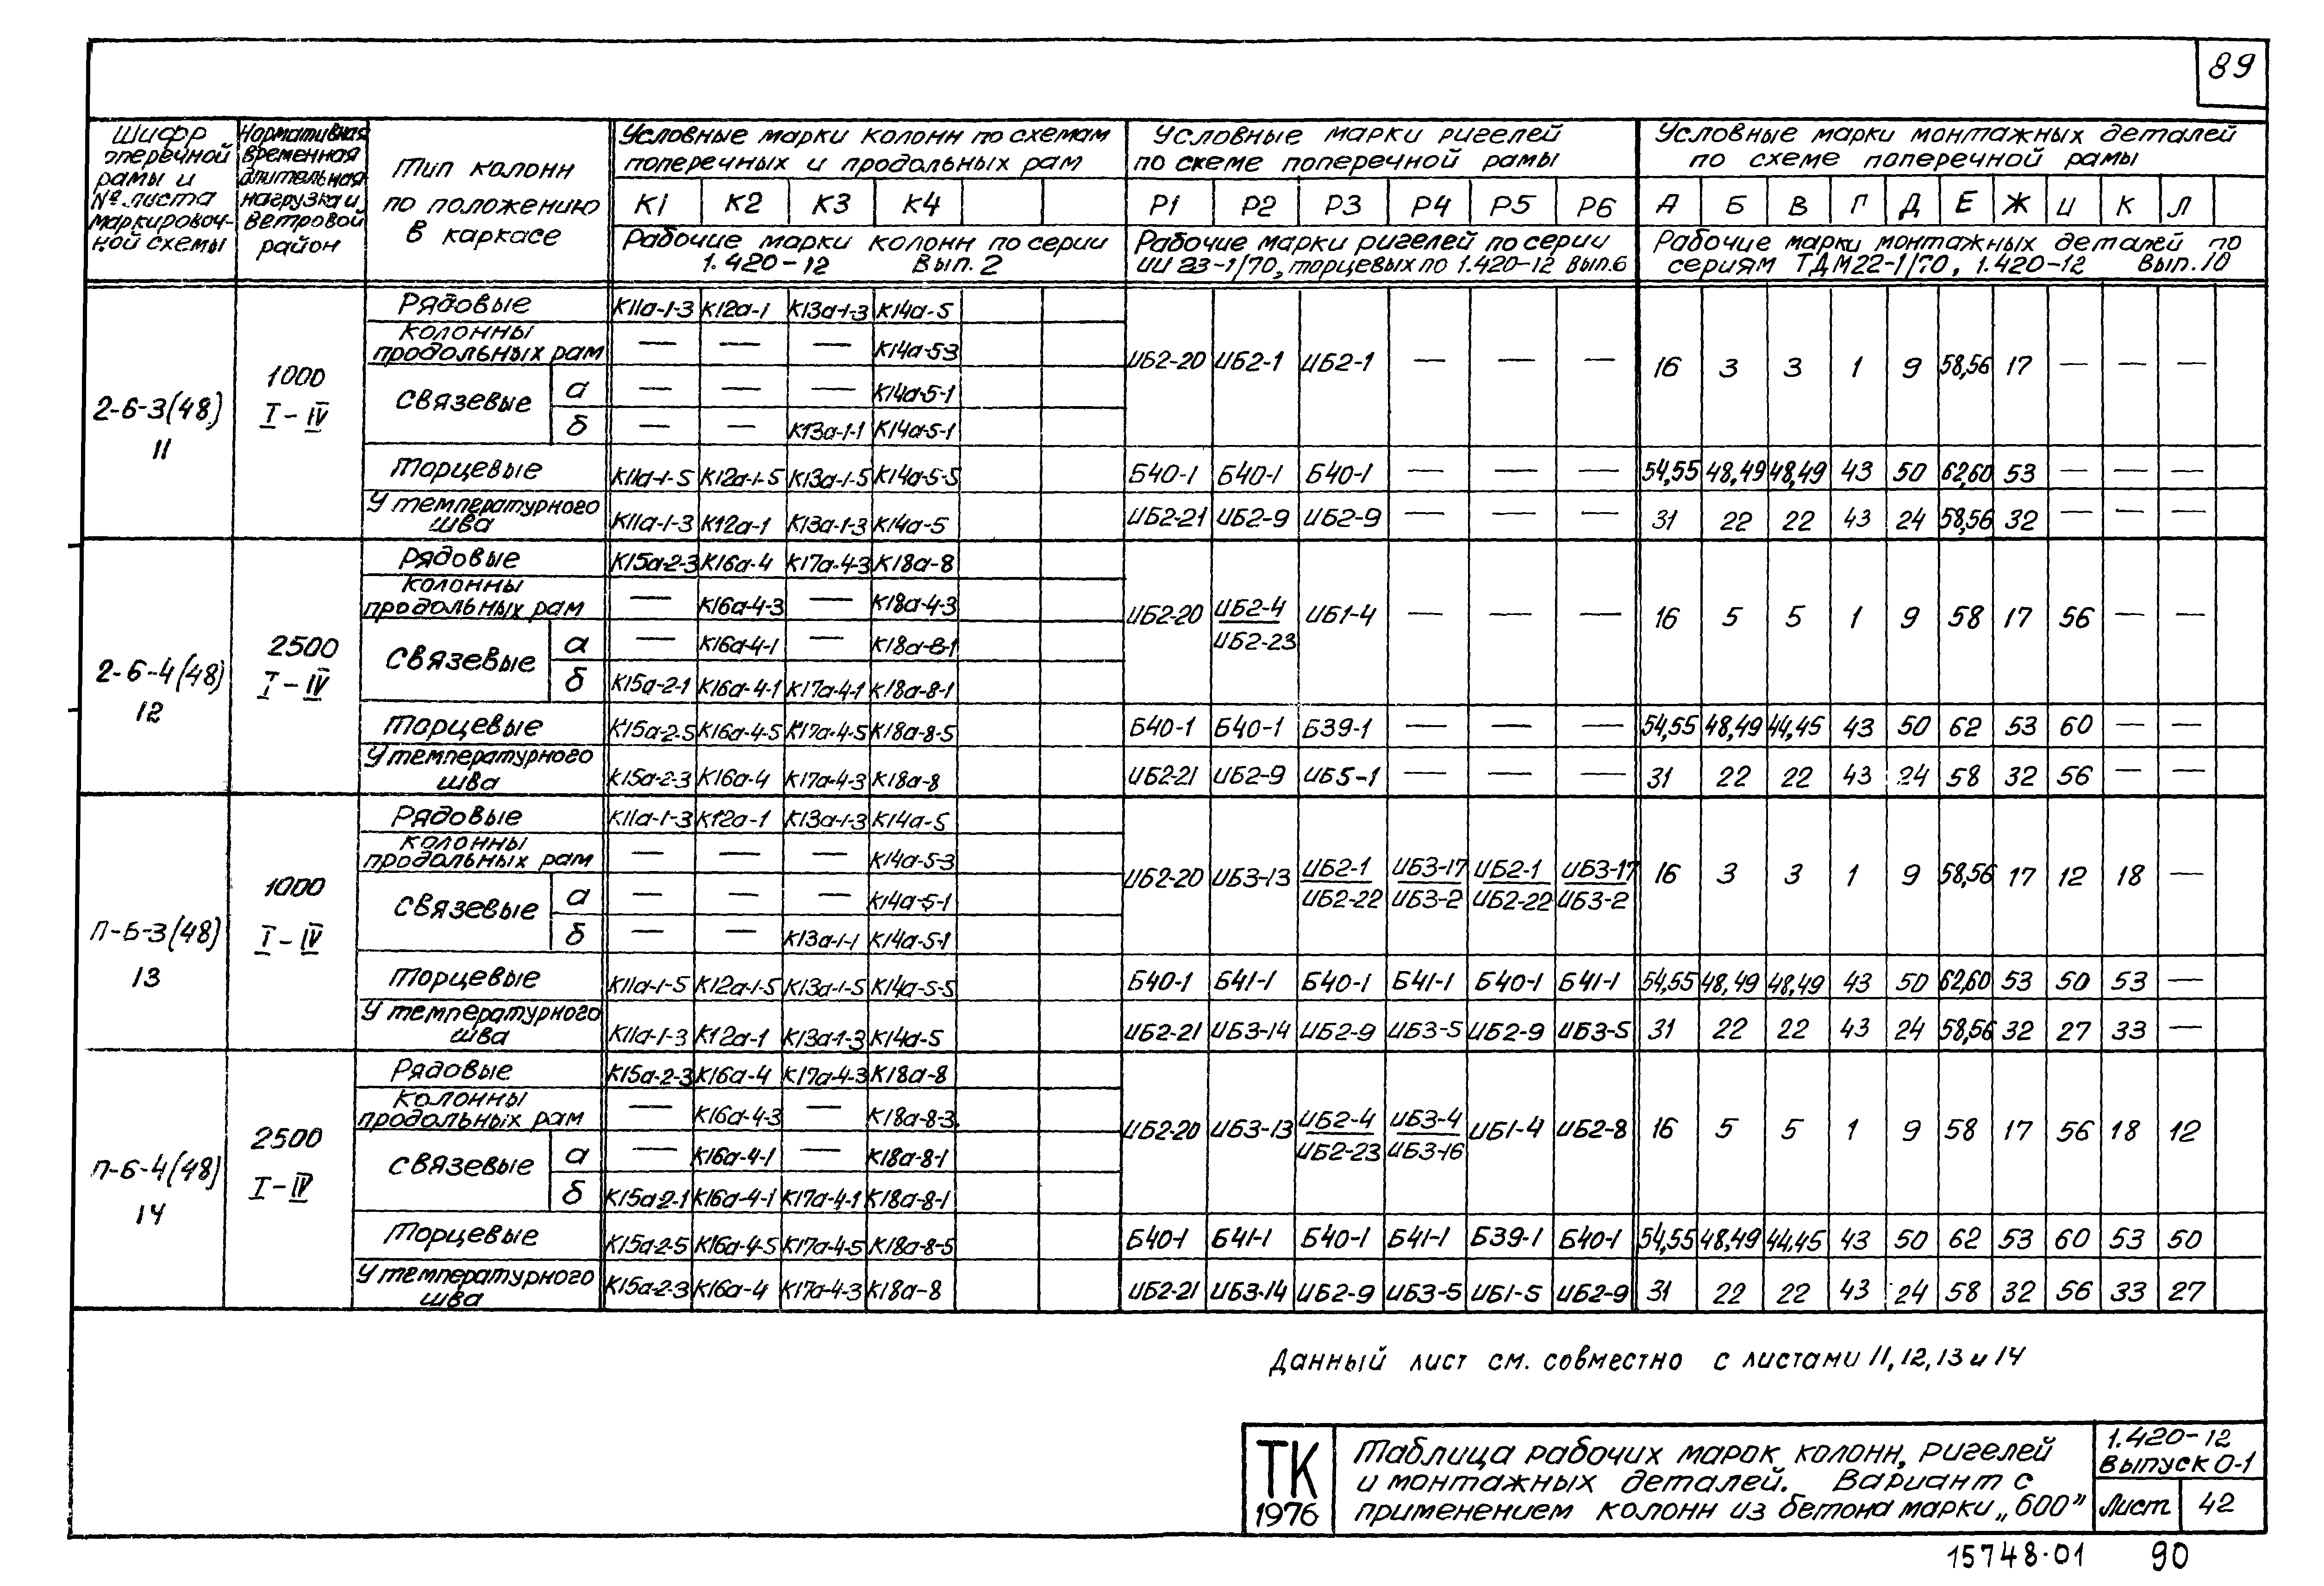 89
Шифр поперечной рамы и № листа маркировочной схемы | Нормативная временная длительная нагрузка и ветровой район | Тип колонн по положению в каркасе | Условные марки колонн по схемам поперечных и продольных рам | Условные марки ригелей по схеме поперечной рамы | Условные марки монтажных деталей по схеме поперечной рамы
К1 К2 К3 К4 | Р1 Р2 Р3 Р4 Р5 Р6 | А Б В Г Д Е Ж И К Л
Рабочие марки колонн по серии 1.420-12 Вып. 2 | Рабочие марки ригелей по серии ИИ 23-1/70, торцевых по 1.420-12 Вып.6 | Рабочие марки монтажных деталей по сериям ТДМ22-1/70, 1.420-12 Вып.10
2-6-3(48) 11 | 1000 I-IV
Рядовые | К11а-1-3 К12а-1 К13а-1-3 К14а-5
Колонны продольных рам | — — — К14а-5-3
ИБ2-20 ИБ2-1 ИБ2-1 — — — | 16 3 3 1 9 58,56 17 — — —
Связевые а | — — — К14а-5-1
б | — — К13а-1-1 К14а-5-1
Торцевые | К11а-1-5 К12а-1-5 К13а-1-5 К14а-5-5 | Б40-1 Б40-1 Б40-1 — — — | 54,55 48,49 48,49 43 50 62,60 53 — — —
У температурного шва | К11а-1-3 К12а-1 К13а-1-3 К14а-5 | ИБ2-21 ИБ2-9 ИБ2-9 — — — | 31 22 22 43 24 58,56 32 — — —
2-6-4(48) 12 | 2500 I-IV
Рядовые | К15а-2-3 К16а-4 К17а-4-3 К18а-8
Колонны продольных рам | — К16а-4-3 — К18а-4-3
ИБ2-20 ИБ2-4/ИБ2-23 ИБ1-4 — — — | 16 5 5 1 9 58 17 56 — —
Связевые а | — К16а-4-1 — К18а-8-1
б | К15а-2-1 К16а-4-1 К17а-4-1 К18а-8-1
Торцевые | К15а-2-5 К16а-4-5 К17а-4-5 К18а-8-5 | Б40-1 Б40-1 Б39-1 — — — | 54,55 48,49 44,45 43 50 62 53 60 — —
У температурного шва | К15а-2-3 К16а-4 К17а-4-3 К18а-8 | ИБ2-21 ИБ2-9 ИБ5-1 — — — | 31 22 22 43 24 58 32 56 — —
П-6-3(48) 13 | 1000 I-IV
Рядовые | К11а-1-3 К12а-1 К13а-1-3 К14а-5
Колонны продольных рам | — — — К14а-5-3
ИБ2-20 ИБ3-13 ИБ2-1/ИБ2-22 ИБ3-17/ИБ3-2 ИБ2-1/ИБ2-22 ИБ3-17/ИБ3-2 | 16 3 3 1 9 58,56 17 12 18 —
Связевые а | — — — К14а-5-1
б | — — К13а-1-1 К14а-5-1
Торцевые | К11а-1-5 К12а-1-5 К13а-1-5 К14а-5-5 | Б40-1 Б41-1 Б40-1 Б41-1 Б40-1 Б41-1 | 54,55 48,49 48,49 43 50 62,60 53 50 53 —
У температурного шва | К11а-1-3 К12а-1 К13а-1-3 К14а-5 | ИБ2-21 ИБ3-14 ИБ2-9 ИБ3-5 ИБ2-9 ИБ3-5 | 31 22 22 43 24 58,56 32 27 33 —
П-6-4(48) 14 | 2500 I-IV
Рядовые | К15а-2-3 К16а-4 К17а-4-3 К18а-8
Колонны продольных рам | — К16а-4-3 — К18а-8-3
ИБ2-20 ИБ3-13 ИБ2-4/ИБ2-23 ИБ3-4/ИБ3-16 ИБ1-4 ИБ2-8 | 16 5 5 1 9 58 17 56 18 12
Связевые а | — К16а-4-1 — К18а-8-1
б | К15а-2-1 К16а-4-1 К17а-4-1 К18а-8-1
Торцевые | К15а-2-5 К16а-4-5 К17а-4-5 К18а-8-5 | Б40-1 Б41-1 Б40-1 Б41-1 Б39-1 Б40-1 | 54,55 48,49 44,45 43 50 62 53 60 53 50
У температурного шва | К15а-2-3 К16а-4 К17а-4-3 К18а-8 | ИБ2-21 ИБ3-14 ИБ2-9 ИБ3-5 ИБ1-5 ИБ2-9 | 31 22 22 43 24 58 32 56 33 27
Данный лист см. совместно с листами 11, 12, 13 и 14
ТК 1976
Таблица рабочих марок колонн, ригелей
и монтажных деталей. Вариант с
применением колонн из бетона марки „600”
1.420-12
Выпуск 0-1
Лист 42
15748-01 90